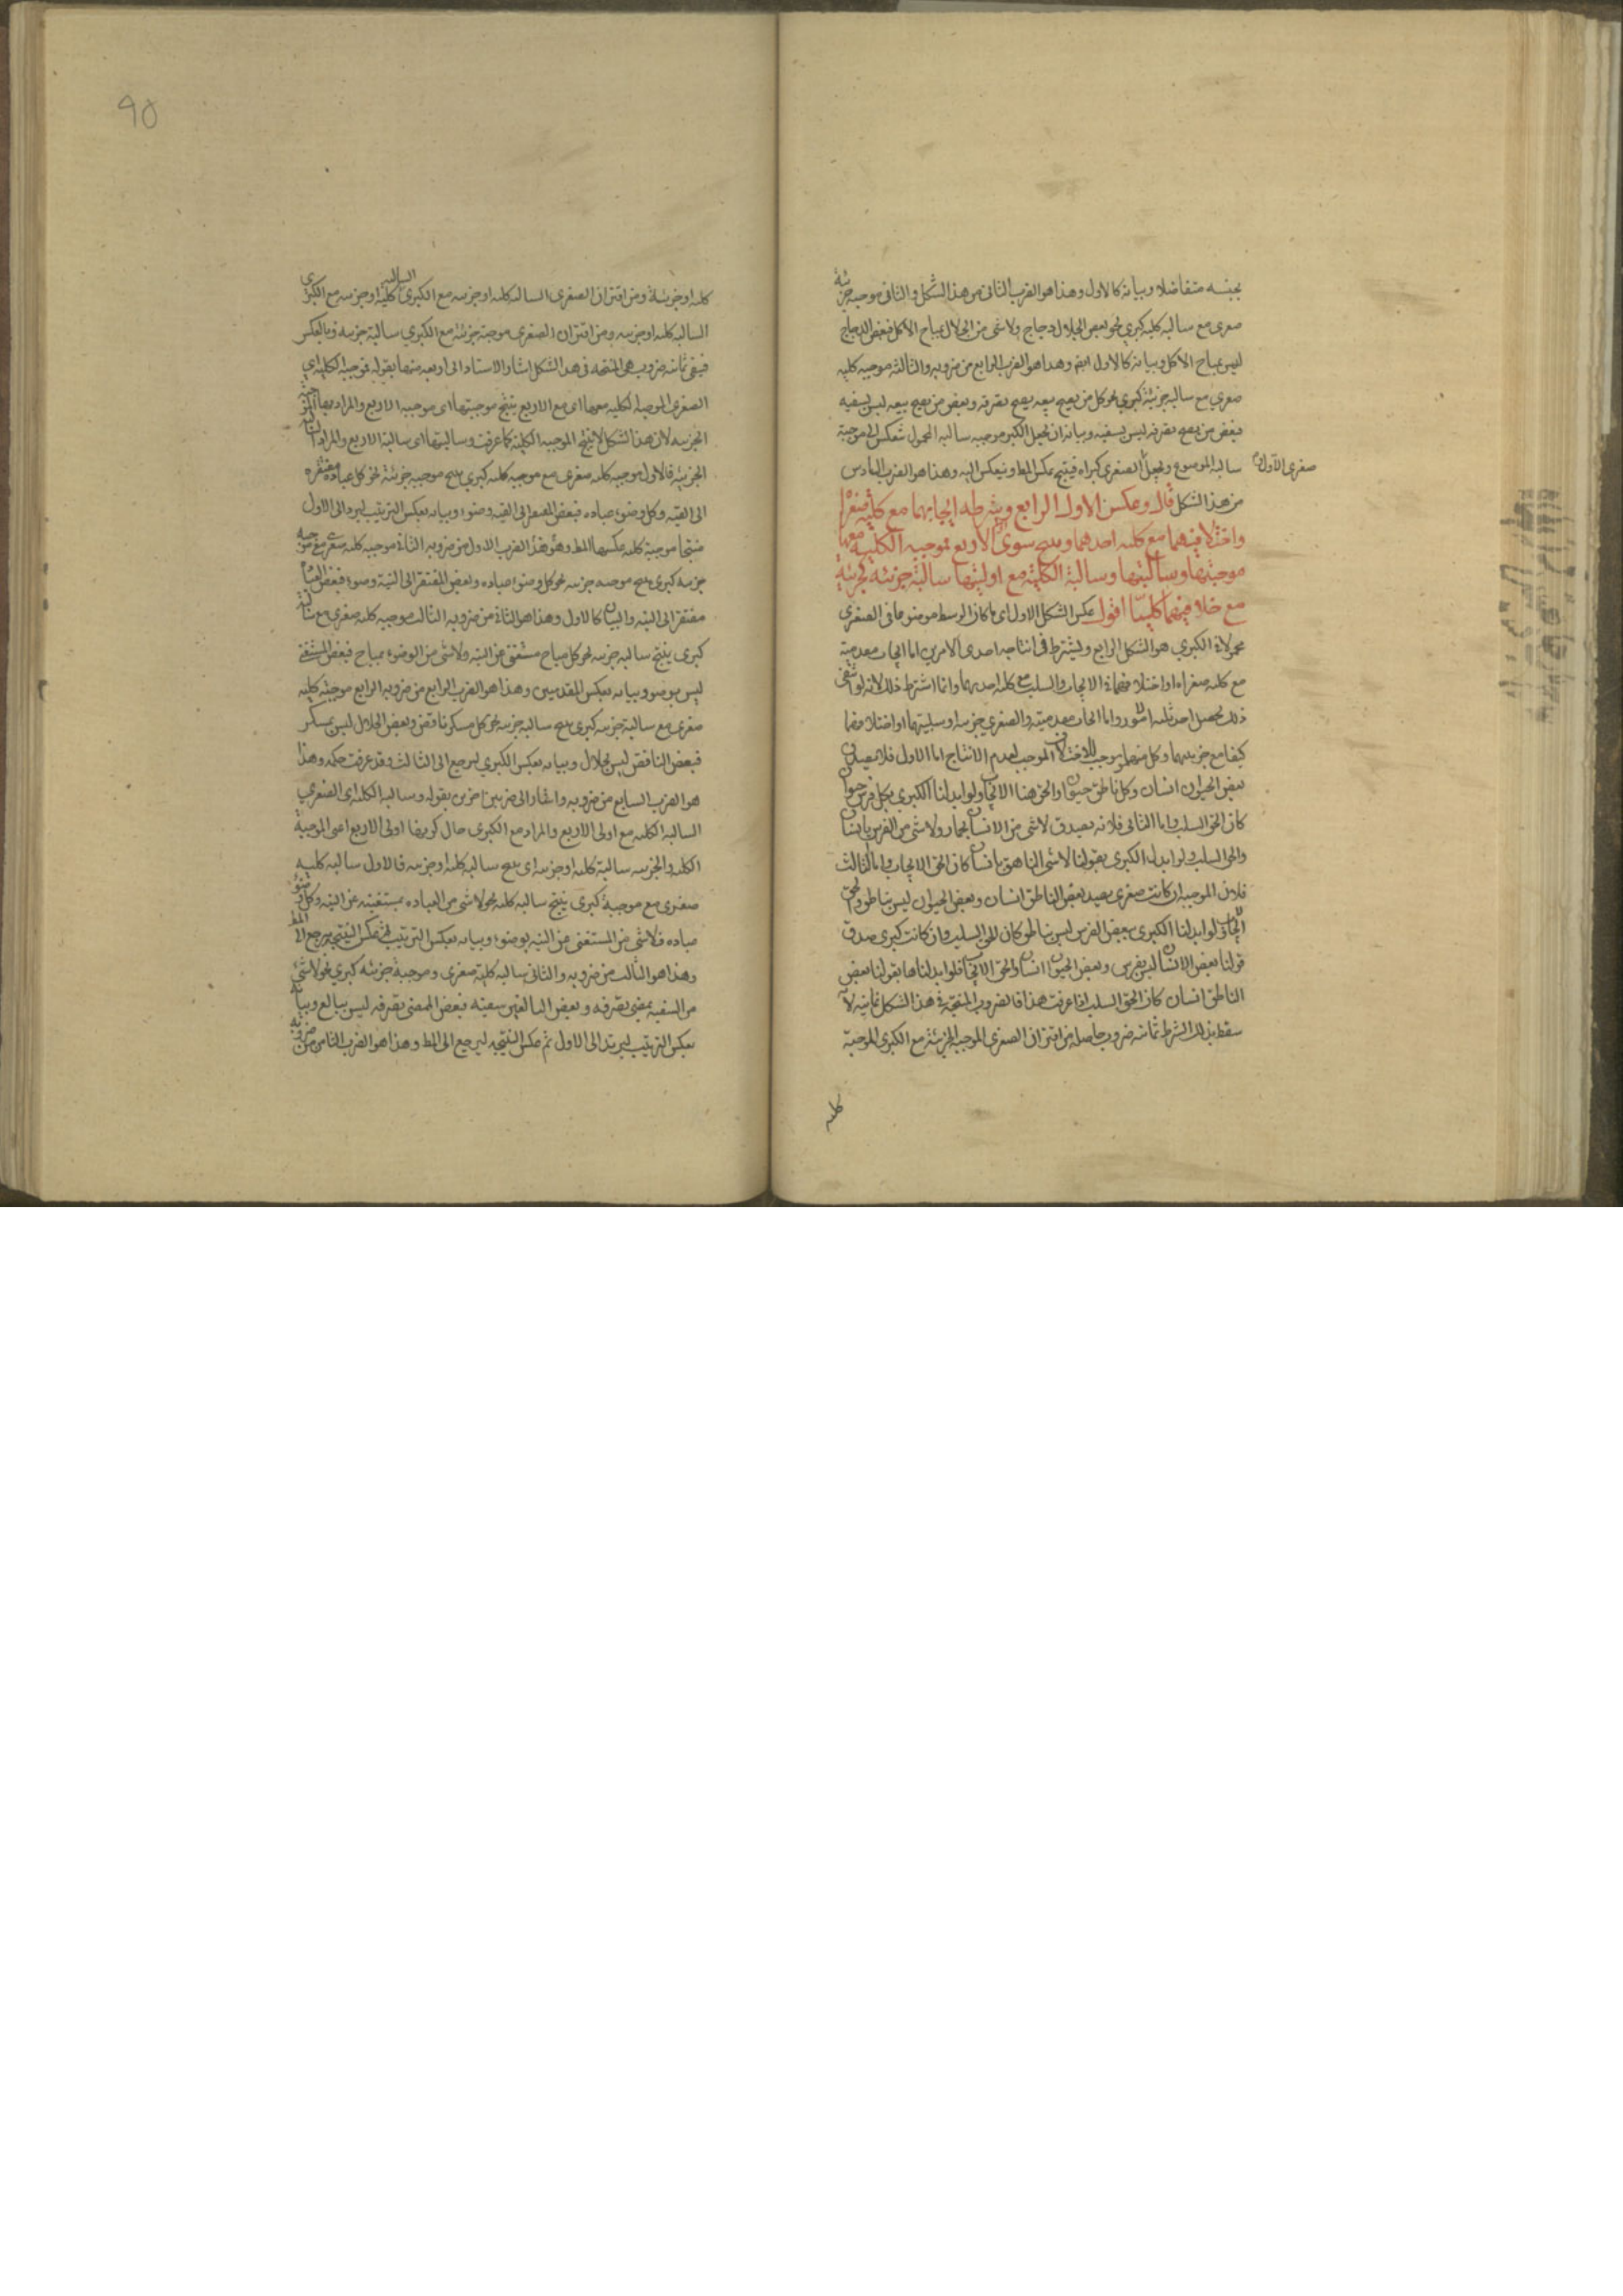 بجنسه متفاضلا وبيانه كالاول وهذا هو الضرب الثانى من هذا الشكل والثانى موجبه جزئية
صغرى مع سالبه كليه كبرى نحو بعض الحلال دجاج ولا شى من الحلال بمباح الاكل فبعض الدجاج
ليس بمباح الاكل وبيانه كالاول ايضا وهذا هو الضرب الرابع من ضروبه والثالثه موجبه كليه
صغرى مع سالبه جزئية كبرى نحو كل من يصح بيعه يصح تصرفه وبعض من يصح بيعه ليس بسفيه
فبعض من يصح تصرفه ليس بسفيه وبيانه ان يجعل الكبرى موجبه سالبه المحمول تنعكس الى موجبة
سالبه الموضوع ويجعل الصغرى كبراه فينتج عكس المط وينعكس اليه وهذا هو الضرب السادس
صغرى الاول
من هذا الشكل قال وعكس الاول الرابع وشرطه ايجابهما مع كلية صغراه
واختلافهما مع كليه احدهما وينتج سوى الاربع فموجبه الكلية معها
موجبتها وسالبتها وسالبة الكلية مع اوليتها سالبة جزئيه كجزئية
مع خلافهما كليتا اقول عكس الشكل الاول اى ما كان الوسط موضوعا فى الصغرى
محمولا فى الكبرى هو الشكل الرابع ويشترط فى انتاجه احدى الامرين اما ايجاب مقدمتيه
مع كليه صغراه او اختلافهما فى الايجاب والسلب مع كليه احديهما وانما اشترط ذلك لانه لو انتفى
ذلك لحصل احد ثلثه امور واما ايجاب مقدمتيه والصغرى جزئيه او سلبيتهما او اختلافهما
كيفا مع جزئيتهما وكل منهما يوجب الاختلاف الموجب لعدم الانتاج اما الاول فلانه يصدق
بعض الحيوان انسان وكل ناطق حيوان والحق هنا الايجاب ولو ابدلنا الكبرى بكل فرس حيوان
كان الحق السلب واما الثانى فلانه يصدق لا شى من الانسان بحمار ولا شى من الفرس بانسان
والحق السلب ولو ابدل الكبرى بقولنا لا شى الناهق بانسان كان الحق الايجاب واما الثالث
فلان الموجبه ان كانت صغرى يصدق بعض الناطق انسان وبعض الحيوان ليس بناطق والحق
الايجاب ولو ابدلنا الكبرى ببعض الفرس ليس بناطق كان الحق السلب وان كانت كبرى صدق
قولنا بعض الانسان ليس بفرس وبعض الحيوان انسان والحق الايجاب فلو ابدلناها بقولنا بعض
الناطق انسان كان الحق السلب اذا عرفت هذا فالضروب المنتجة فى هذا الشكل ثمانيه لانه
سقط بذلك الشرط ثمانيه ضروب حاصله من اقتران الصغرى الموجبه الجزئية مع الكبرى الموجبة
كليه
90
كليه او جزئية ومن اقتران الصغرى السالبه كليه او جزئيه مع الكبرى السالبه كلية او جزئيه مع الكبرى
السالبه كليه او جزئيه ومن اقتران الصغرى موجبة جزئية مع الكبرى سالبة جزئيه وبالعكس
فبقى ثمانيه ضروب هى المنتجه فى هذا الشكل اشار الاستاد الى اربعه منها بقوله فموجبة الكلية اى
الصغرى الموجبة الكليه معها اى مع الاربع ينتج موجبتها اى موجبه الاربع والمراد بها الموجبة
الجزئيه لان هذا الشكل لا ينتج الموجبه الكلية كما عرفت وسالبتها اى سالبة الاربع والمراد السالبة
الجزئية فالاول موجبه كليه صغرى مع موجبه كليه كبرى ينتج موجبه جزئية نحو كل عباده مفتقره
الى النيه وكل وضوء عباده فبعض المفتقر الى النيه وضوء وبيانه بعكس الترتيب ليرد الى الاول
منتجا موجبة كليه عكسها المط وهو هذا الضرب الاول من ضروبه الثانى موجبه كليه صغرى مع موجبه
جزئيه كبرى ينتج موجبه جزئيه نحو كل وضوء عباده وبعض المفتقر الى النية وضوء فبعض العباده
مفتقر الى النيه والبيان كالاول وهذا هو الثانى من ضروبه الثالث موجبه كليه صغرى مع سالبه
كبرى ينتج سالبه جزئيه نحو كل مباح مستغن عن النيه ولا شى من الوضوء بمباح فبعض المستغنى
ليس بوضوء وبيانه بعكس المقدمتين وهذا هو الضرب الرابع من ضروبه الرابع موجبة كليه
صغرى مع سالبة جزئيه كبرى ينتج سالبه جزئيه نحو كل مسكر ناقض وبعض الحلال ليس بمسكر
فبعض الناقض ليس بحلال وبيانه بعكس الكبرى ليرجع الى الثالث وقد عرفت حكمه وهذا
هو الضرب السابع من ضروبه واشار الى ضربين اخرين بقوله وسالبه الكليه اى الصغرى
السالبه الكليه مع اولى الاربع والمراد مع الكبرى حال كونها اولى الاربع اعنى الموجبة
الكليه والجزئيه سالبة كليه او جزئيه اى ينتج سالبه كليه او جزئيه فالاول سالبه كليه
صغرى مع موجبة كبرى ينتج سالبه كليه نحو لا شى من العباده بمستغنيه عن النيه وكل وضوء
عباده فلا شى من المستغنى عن النيه بوضوء وبيانه بعكس الترتيب ثم عكس النتيجه ليرجع الى المط
وهذا هو الثالث من ضروبه والثانى سالبه كلية صغرى وموجبة جزئيه كبرى نحو لا شئ
من السفيه بمضى تصرفه وبعض البالغين سفيه فبعض الممضى تصرفه ليس ببالغ وبيانه
بعكس الترتيب ليرتد الى الاول ثم عكس النتيجه ليرجع الى المط وهذا هو الضرب الثامن من ضروبه